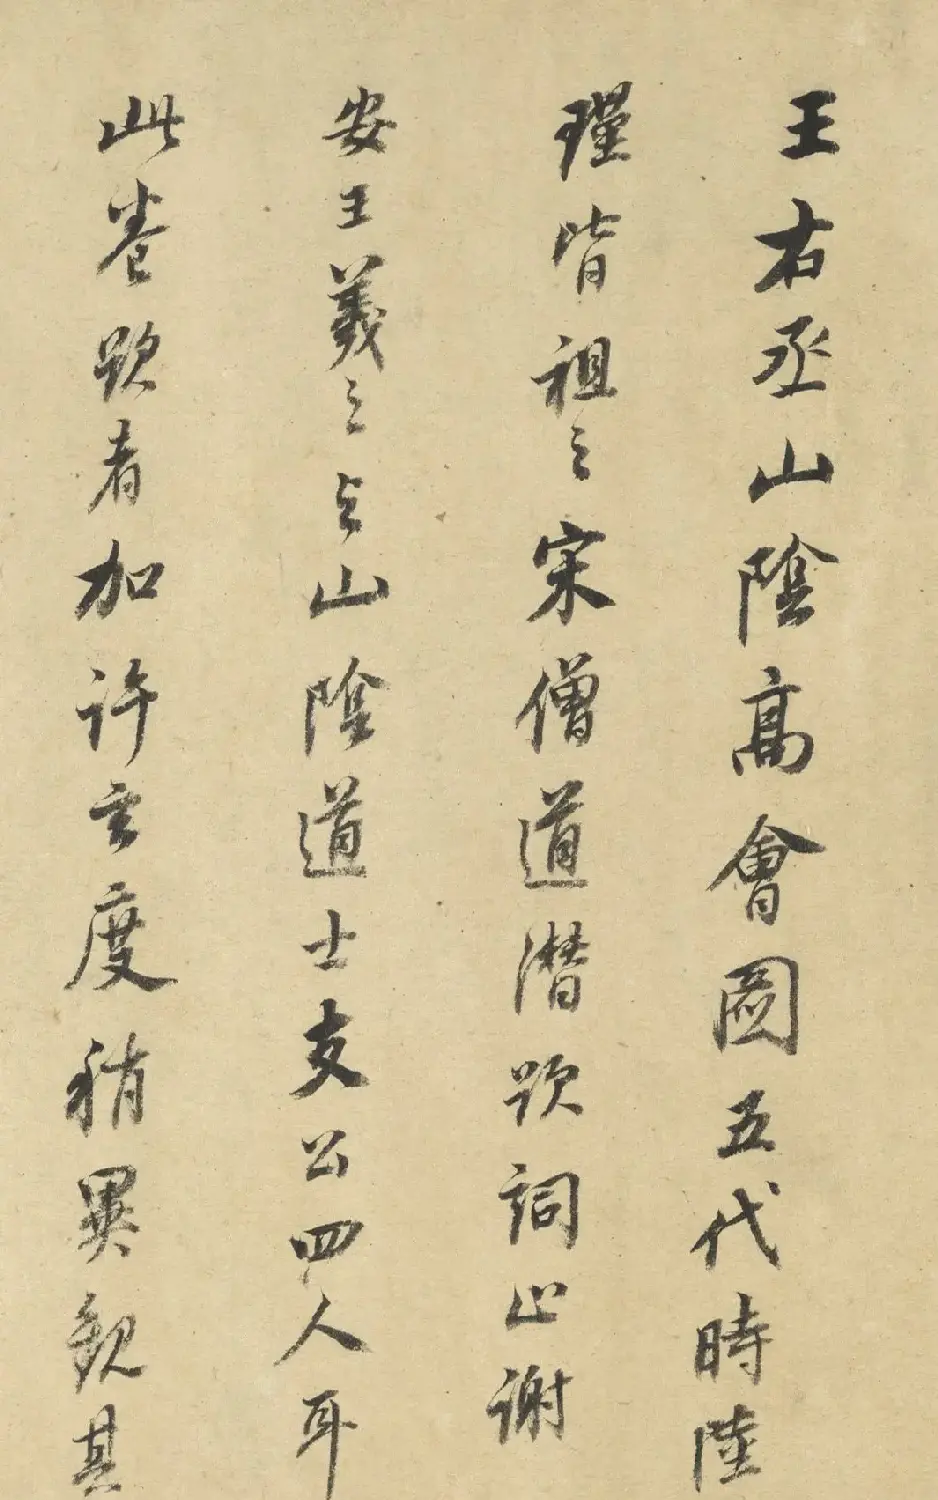 王右丞山陰高會圖五代時陸
瑾皆祖之宋僧道潛跋詞止謝
安王羲之與山陰道士支公四人耳
此卷跋者加許玄度稍異觀其